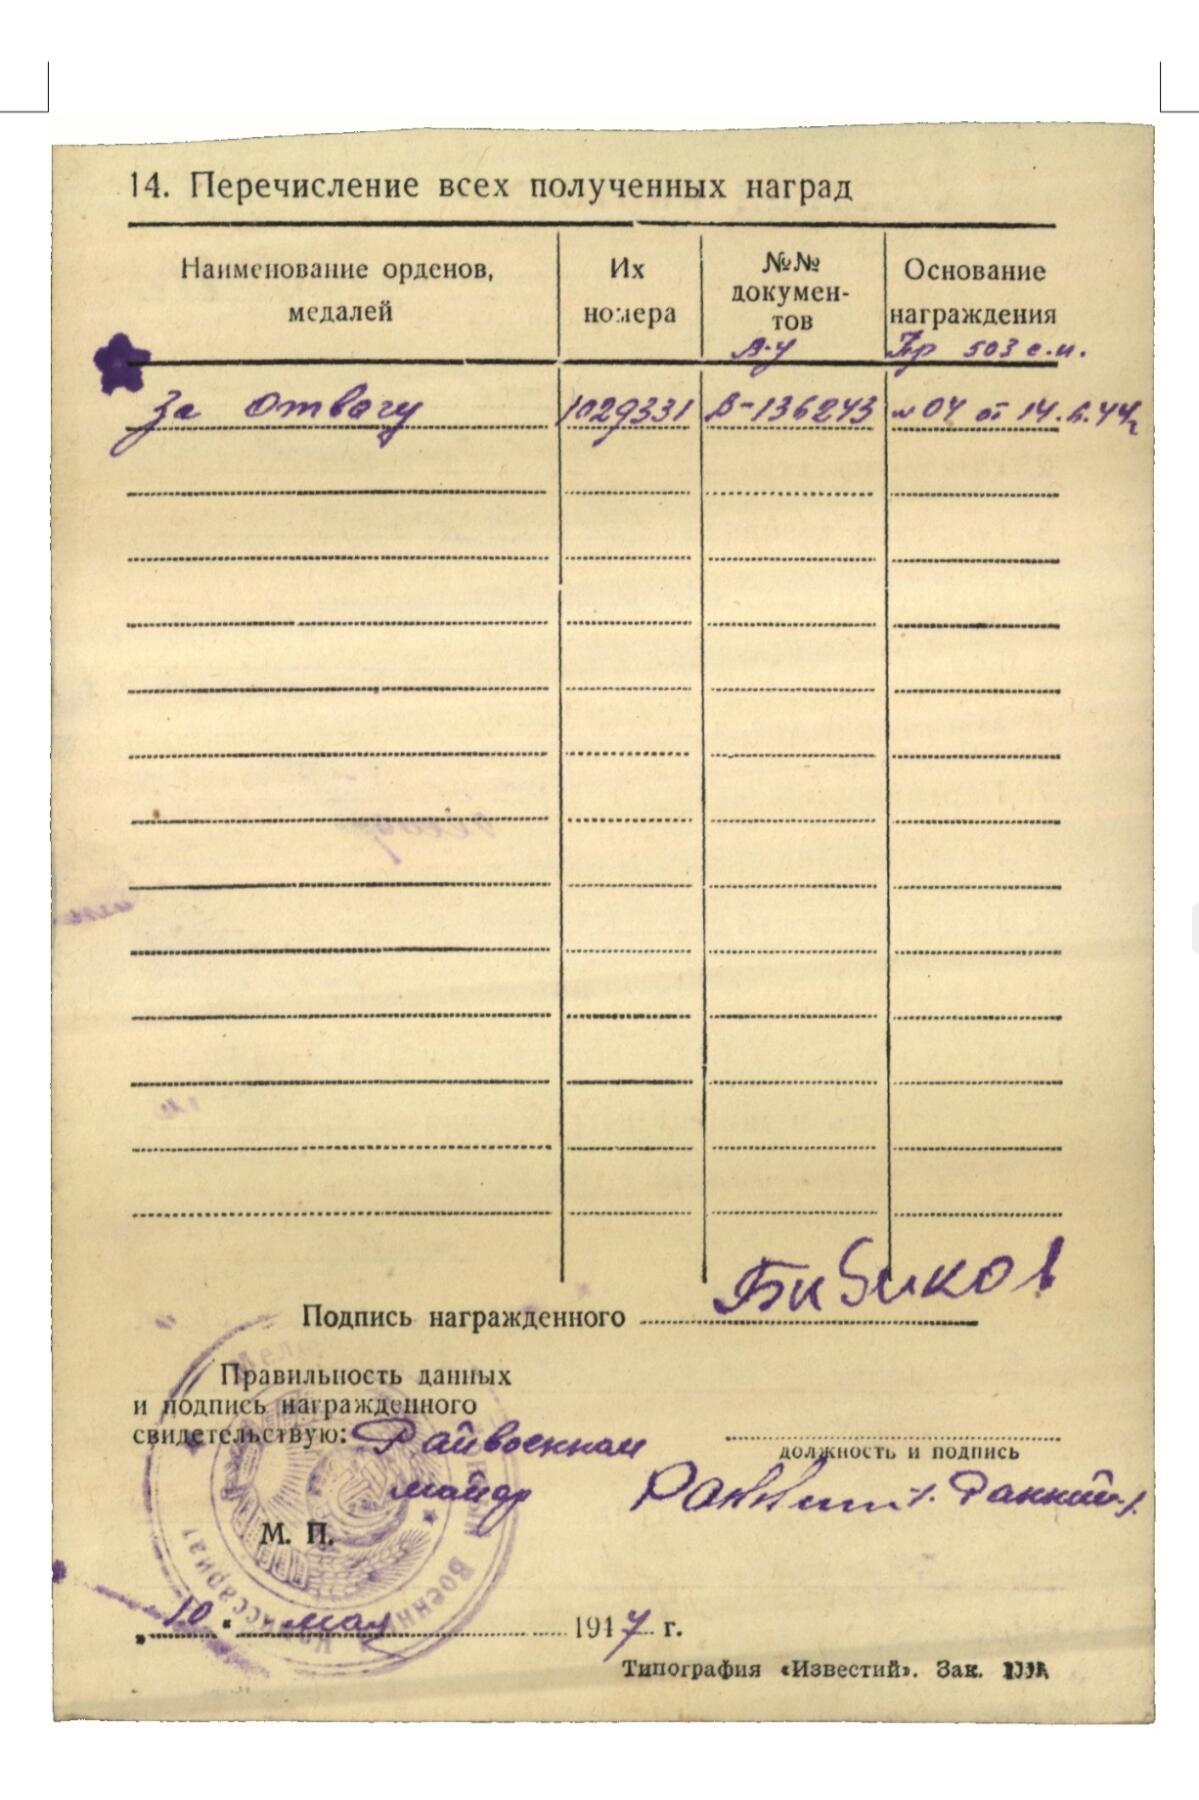 14. Перечисление всех полученных наград
Наименование орденов, медалей
Их номера
№№ документов
Основание награждения
А-у Пр 503 с.п.
За отвагу 1029331 В-136243 № 04 от 14.6.44г
Подпись награжденного Бибиков
Правильность данных
и подпись награжденного
свидетельствую: Райвоенком
должность и подпись
майор
М. П.
Военный Комиссариат
„10“ мая 1947 г.
Типография «Известий». Зак.